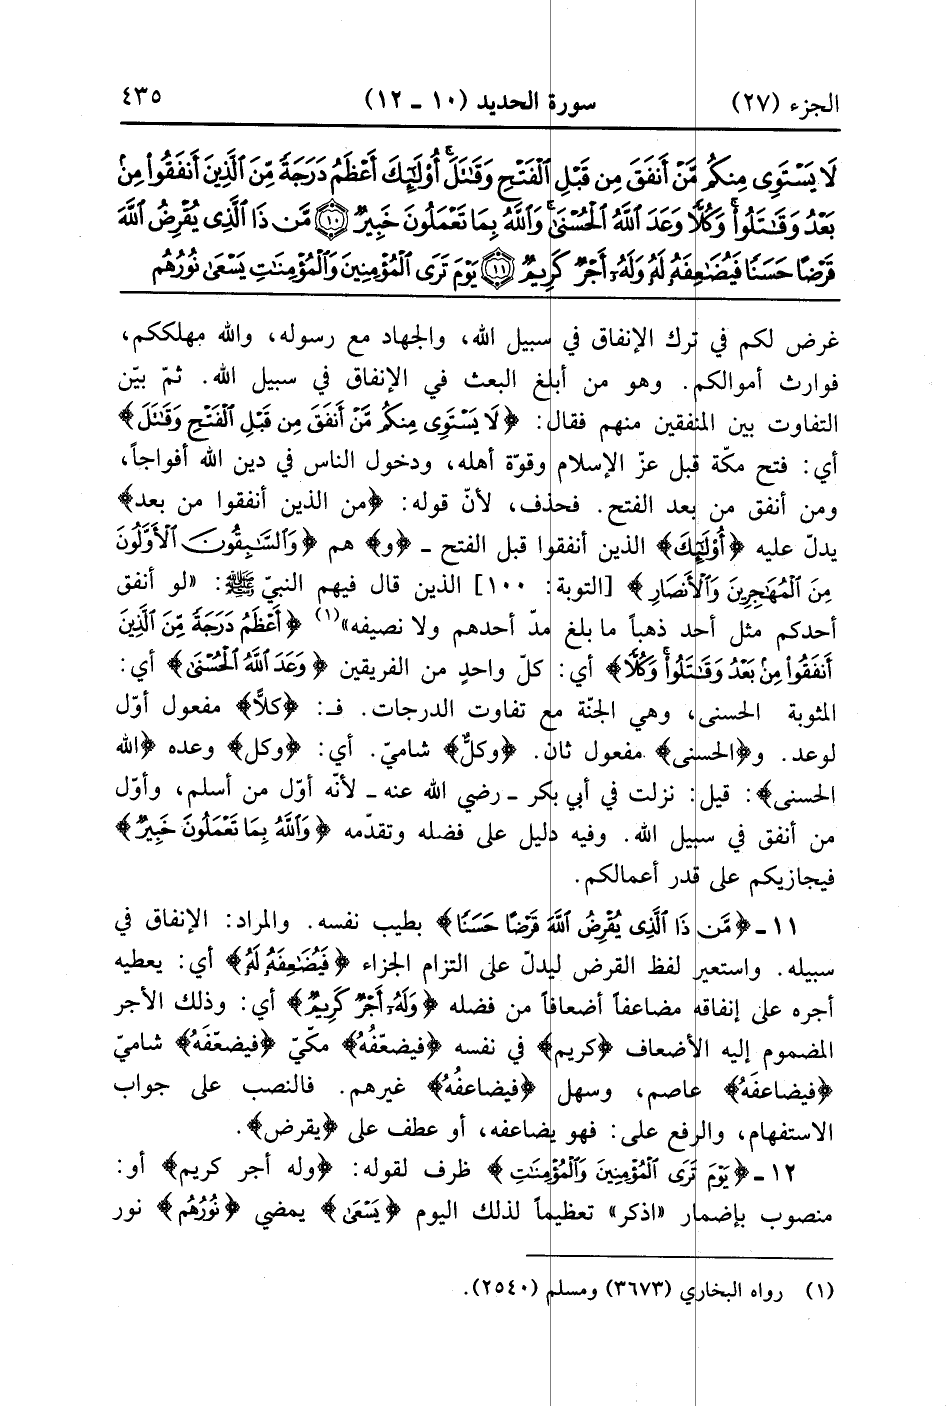 الجزء (٢٧) سورة الحديد (١٠ ـ ١٢) ٤٣٥
لَا يَسْتَوِى مِنكُم مَّنْ أَنفَقَ مِن قَبْلِ ٱلْفَتْحِ وَقَٰتَلَ ۚ أُو۟لَٰٓئِكَ أَعْظَمُ دَرَجَةً مِّنَ ٱلَّذِينَ أَنفَقُوا۟ مِنۢ
بَعْدُ وَقَٰتَلُوا۟ ۚ وَكُلًّا وَعَدَ ٱللَّهُ ٱلْحُسْنَىٰ ۚ وَٱللَّهُ بِمَا تَعْمَلُونَ خَبِيرٌ ﴿١٠﴾ مَّن ذَا ٱلَّذِى يُقْرِضُ ٱللَّهَ
قَرْضًا حَسَنًا فَيُضَٰعِفَهُۥ لَهُۥ وَلَهُۥٓ أَجْرٌ كَرِيمٌ ﴿١١﴾ يَوْمَ تَرَى ٱلْمُؤْمِنِينَ وَٱلْمُؤْمِنَٰتِ يَسْعَىٰ نُورُهُم
غرض لكم في ترك الإنفاق في سبيل الله، والجهاد مع رسوله، والله مهلككم،
فوارث أموالكم. وهو من أبلغ البعث في الإنفاق في سبيل الله. ثمّ بيّن
التفاوت بين المنفقين منهم فقال: ﴿لَا يَسْتَوِى مِنكُم مَّنْ أَنفَقَ مِن قَبْلِ ٱلْفَتْحِ وَقَٰتَلَ﴾
أي: فتح مكّة قبل عزّ الإسلام وقوّة أهله، ودخول الناس في دين الله أفواجاً،
ومن أنفق من بعد الفتح. فحذف، لأنّ قوله: ﴿من الذين أنفقوا من بعد﴾
يدلّ عليه ﴿أُو۟لَٰٓئِكَ﴾ الذين أنفقوا قبل الفتح ـ ﴿و﴾ هم ﴿وَٱلسَّٰبِقُونَ ٱلْأَوَّلُونَ
مِنَ ٱلْمُهَٰجِرِينَ وَٱلْأَنصَارِ﴾ [التوبة: ١٠٠] الذين قال فيهم النبيّ ﷺ: «لو أنفق
أحدكم مثل أحد ذهباً ما بلغ مدّ أحدهم ولا نصيفه»(١) ﴿أَعْظَمُ دَرَجَةً مِّنَ ٱلَّذِينَ
أَنفَقُوا۟ مِنۢ بَعْدُ وَقَٰتَلُوا۟ ۚ وَكُلًّا﴾ أي: كلّ واحدٍ من الفريقين ﴿وَعَدَ ٱللَّهُ ٱلْحُسْنَىٰ﴾ أي:
المثوبة الحسنى، وهي الجنّة مع تفاوت الدرجات. فـ: ﴿كلاًّ﴾ مفعول أوّل
لوعد. و﴿الحسنى﴾ مفعول ثان. ﴿وكلٌّ﴾ شاميّ. أي: ﴿وكل﴾ وعده ﴿الله
الحسنى﴾: قيل: نزلت في أبي بكر ـ رضي الله عنه ـ لأنّه أوّل من أسلم، وأوّل
من أنفق في سبيل الله. وفيه دليل على فضله وتقدّمه ﴿وَٱللَّهُ بِمَا تَعْمَلُونَ خَبِيرٌ﴾
فيجازيكم على قدر أعمالكم.
١١ ـ ﴿مَّن ذَا ٱلَّذِى يُقْرِضُ ٱللَّهَ قَرْضًا حَسَنًا﴾ بطيب نفسه. والمراد: الإنفاق في
سبيله. واستعير لفظ القرض ليدلّ على التزام الجزاء ﴿فَيُضَٰعِفَهُۥ لَهُۥ﴾ أي: يعطيه
أجره على إنفاقه مضاعفاً أضعافاً من فضله ﴿وَلَهُۥٓ أَجْرٌ كَرِيمٌ﴾ أي: وذلك الأجر
المضموم إليه الأضعاف ﴿كريم﴾ في نفسه ﴿فيضعّفُهُ﴾ مكّيّ ﴿فيضعّفَهُ﴾ شاميّ
﴿فيضاعفَهُ﴾ عاصم، وسهل ﴿فيضاعفُهُ﴾ غيرهم. فالنصب على جواب
الاستفهام، والرفع على: فهو يضاعفه، أو عطف على ﴿يقرض﴾.
١٢ ـ ﴿يَوْمَ تَرَى ٱلْمُؤْمِنِينَ وَٱلْمُؤْمِنَٰتِ﴾ ظرف لقوله: ﴿وله أجر كريم﴾ أو:
منصوب بإضمار «اذكر» تعظيماً لذلك اليوم ﴿يَسْعَىٰ﴾ يمضي ﴿نُورُهُم﴾ نور
(١) رواه البخاري (٣٦٧٣) ومسلم (٢٥٤٠).